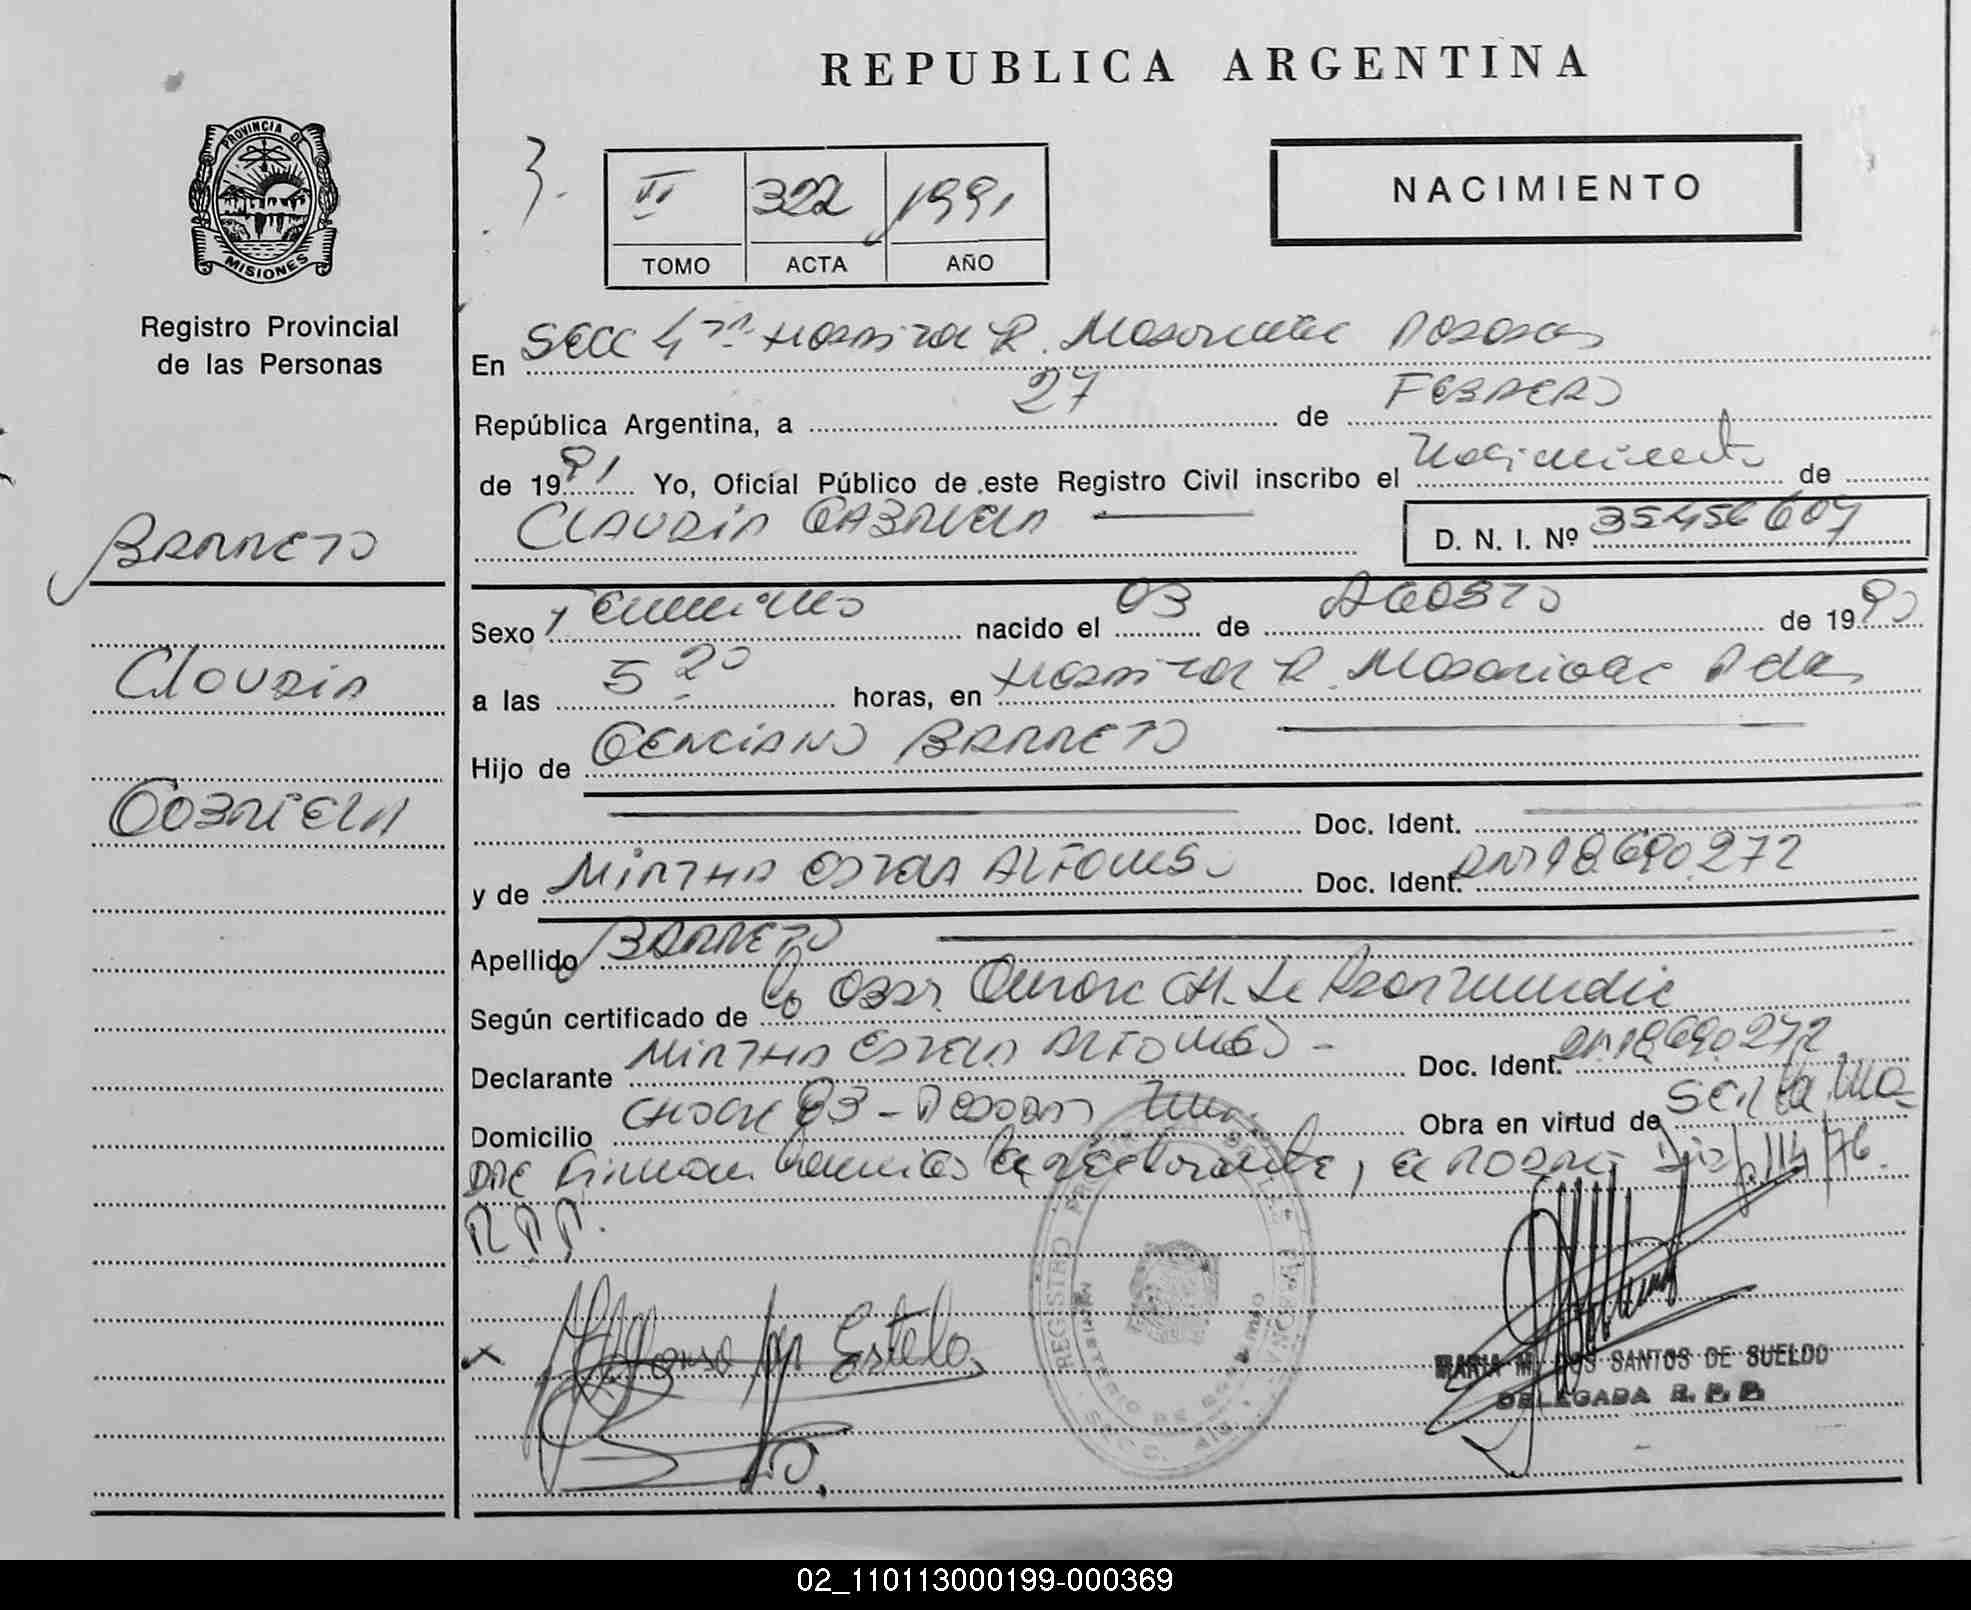 REPUBLICA ARGENTINA
PROVINCIA DE
MISIONES
Registro Provincial
de las Personas
3.
II 322 1991
TOMO ACTA AÑO
NACIMIENTO
En Secc 4ta Hospital R. Madariaga Posadas
República Argentina, a 27 de FEBRERO
de 1991 Yo, Oficial Público de este Registro Civil inscribo el Nacimiento de
CLAUDIA GABRIELA
D. N. I. Nº 35456607
BARRETO
Claudia
Gabriela
Sexo Femenino nacido el 03 de AGOSTO de 1990
a las 5 20 horas, en Hospital R. Madariaga Pdas
Hijo de GENCIANO BARRETO
Doc. Ident.
y de MIRTHA ESTELA ALFONSO Doc. Ident. DNI 18.690.272
Apellido BARRETO
Según certificado de la Obst.
Declarante MIRTHA ESTELA ALFONSO - Doc. Ident. DNI 18690272
Domicilio Chacra 83 - Posadas Mnes. Obra en virtud de ser la ma-
dre Firman la declarante, 114/76
R.P.P.
Alfonso M Estela
REGISTRO PROVINCIAL DE LAS PERSONAS
MINISTERIO DE GOBIERNO
MARIA M. DOS SANTOS DE SUELDO
DELEGADA R. P. P.
02_110113000199-000369